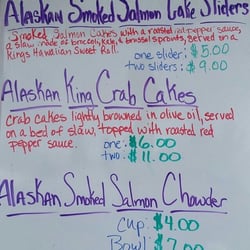 Alaskan Smoked Salmon Cake Sliders
Smoked Salmon Cakes with a roasted red pepper sauce,
a slaw made of broccoli, kale, & brussel sprouts, served on a
Kings Hawaiian Sweet Roll.
one slider: $5.00
two sliders: $9.00
Alaskan King Crab Cakes
Crab cakes lightly browned in olive oil, served
on a bed of slaw, topped with roasted red
pepper sauce.
one: $6.00
two: $11.00
Alaskan Smoked Salmon Chowder
Cup: $4.00
Bowl: $7.00